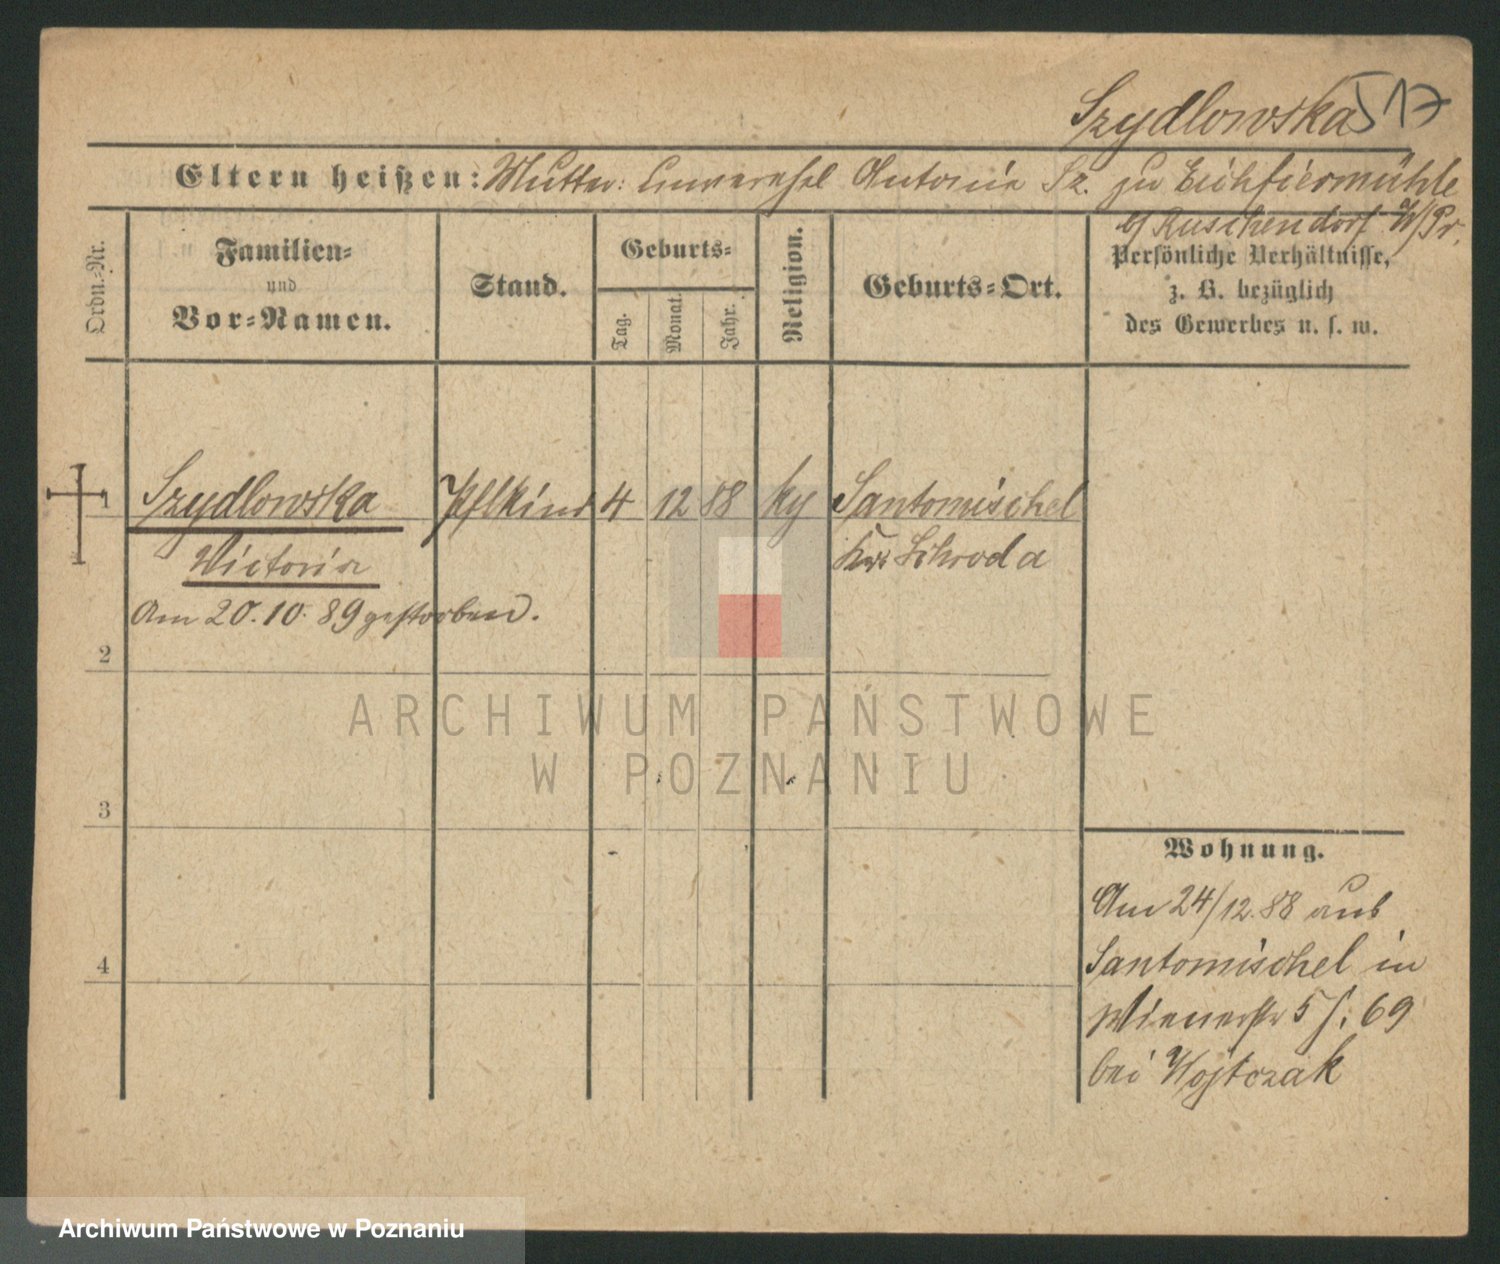 Szydlowska 517
Eltern heißen: Mutter: unverehel Antonie Sz. zu Eichfiermühle
b/ Ruschendorf W/Pr.
Ordn.-Nr.
Familien-
und
Vor-Namen.
Stand.
Geburts-
Tag.
Monat.
Jahr.
Religion.
Geburts-Ort.
Persönliche Verhältnisse,
z. B. bezüglich
des Gewerbes u. s. w.
1 Szydlowska Pflkind 4 12 88 Santomischel
Victoria Krs Schroda
Am 20.10.89 gestorben.
2
3
4
Wohnung.
Am 24/12.88 aus
Santomischel in
Wienerstr 5 69
bei Wojtczak
ARCHIWUM PAŃSTWOWE
W POZNANIU
Archiwum Państwowe w Poznaniu